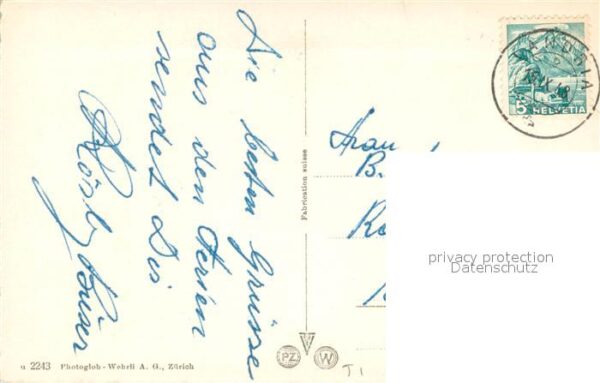 Die besten Grüsse
aus den Ferien
sendet Dir
Rösly
Frau
B.
Fabrication suisse
5
HELVETIA
privacy protection
Datenschutz
u 2243 Photoglob-Wehrli A. G., Zürich
PZ
W
T1